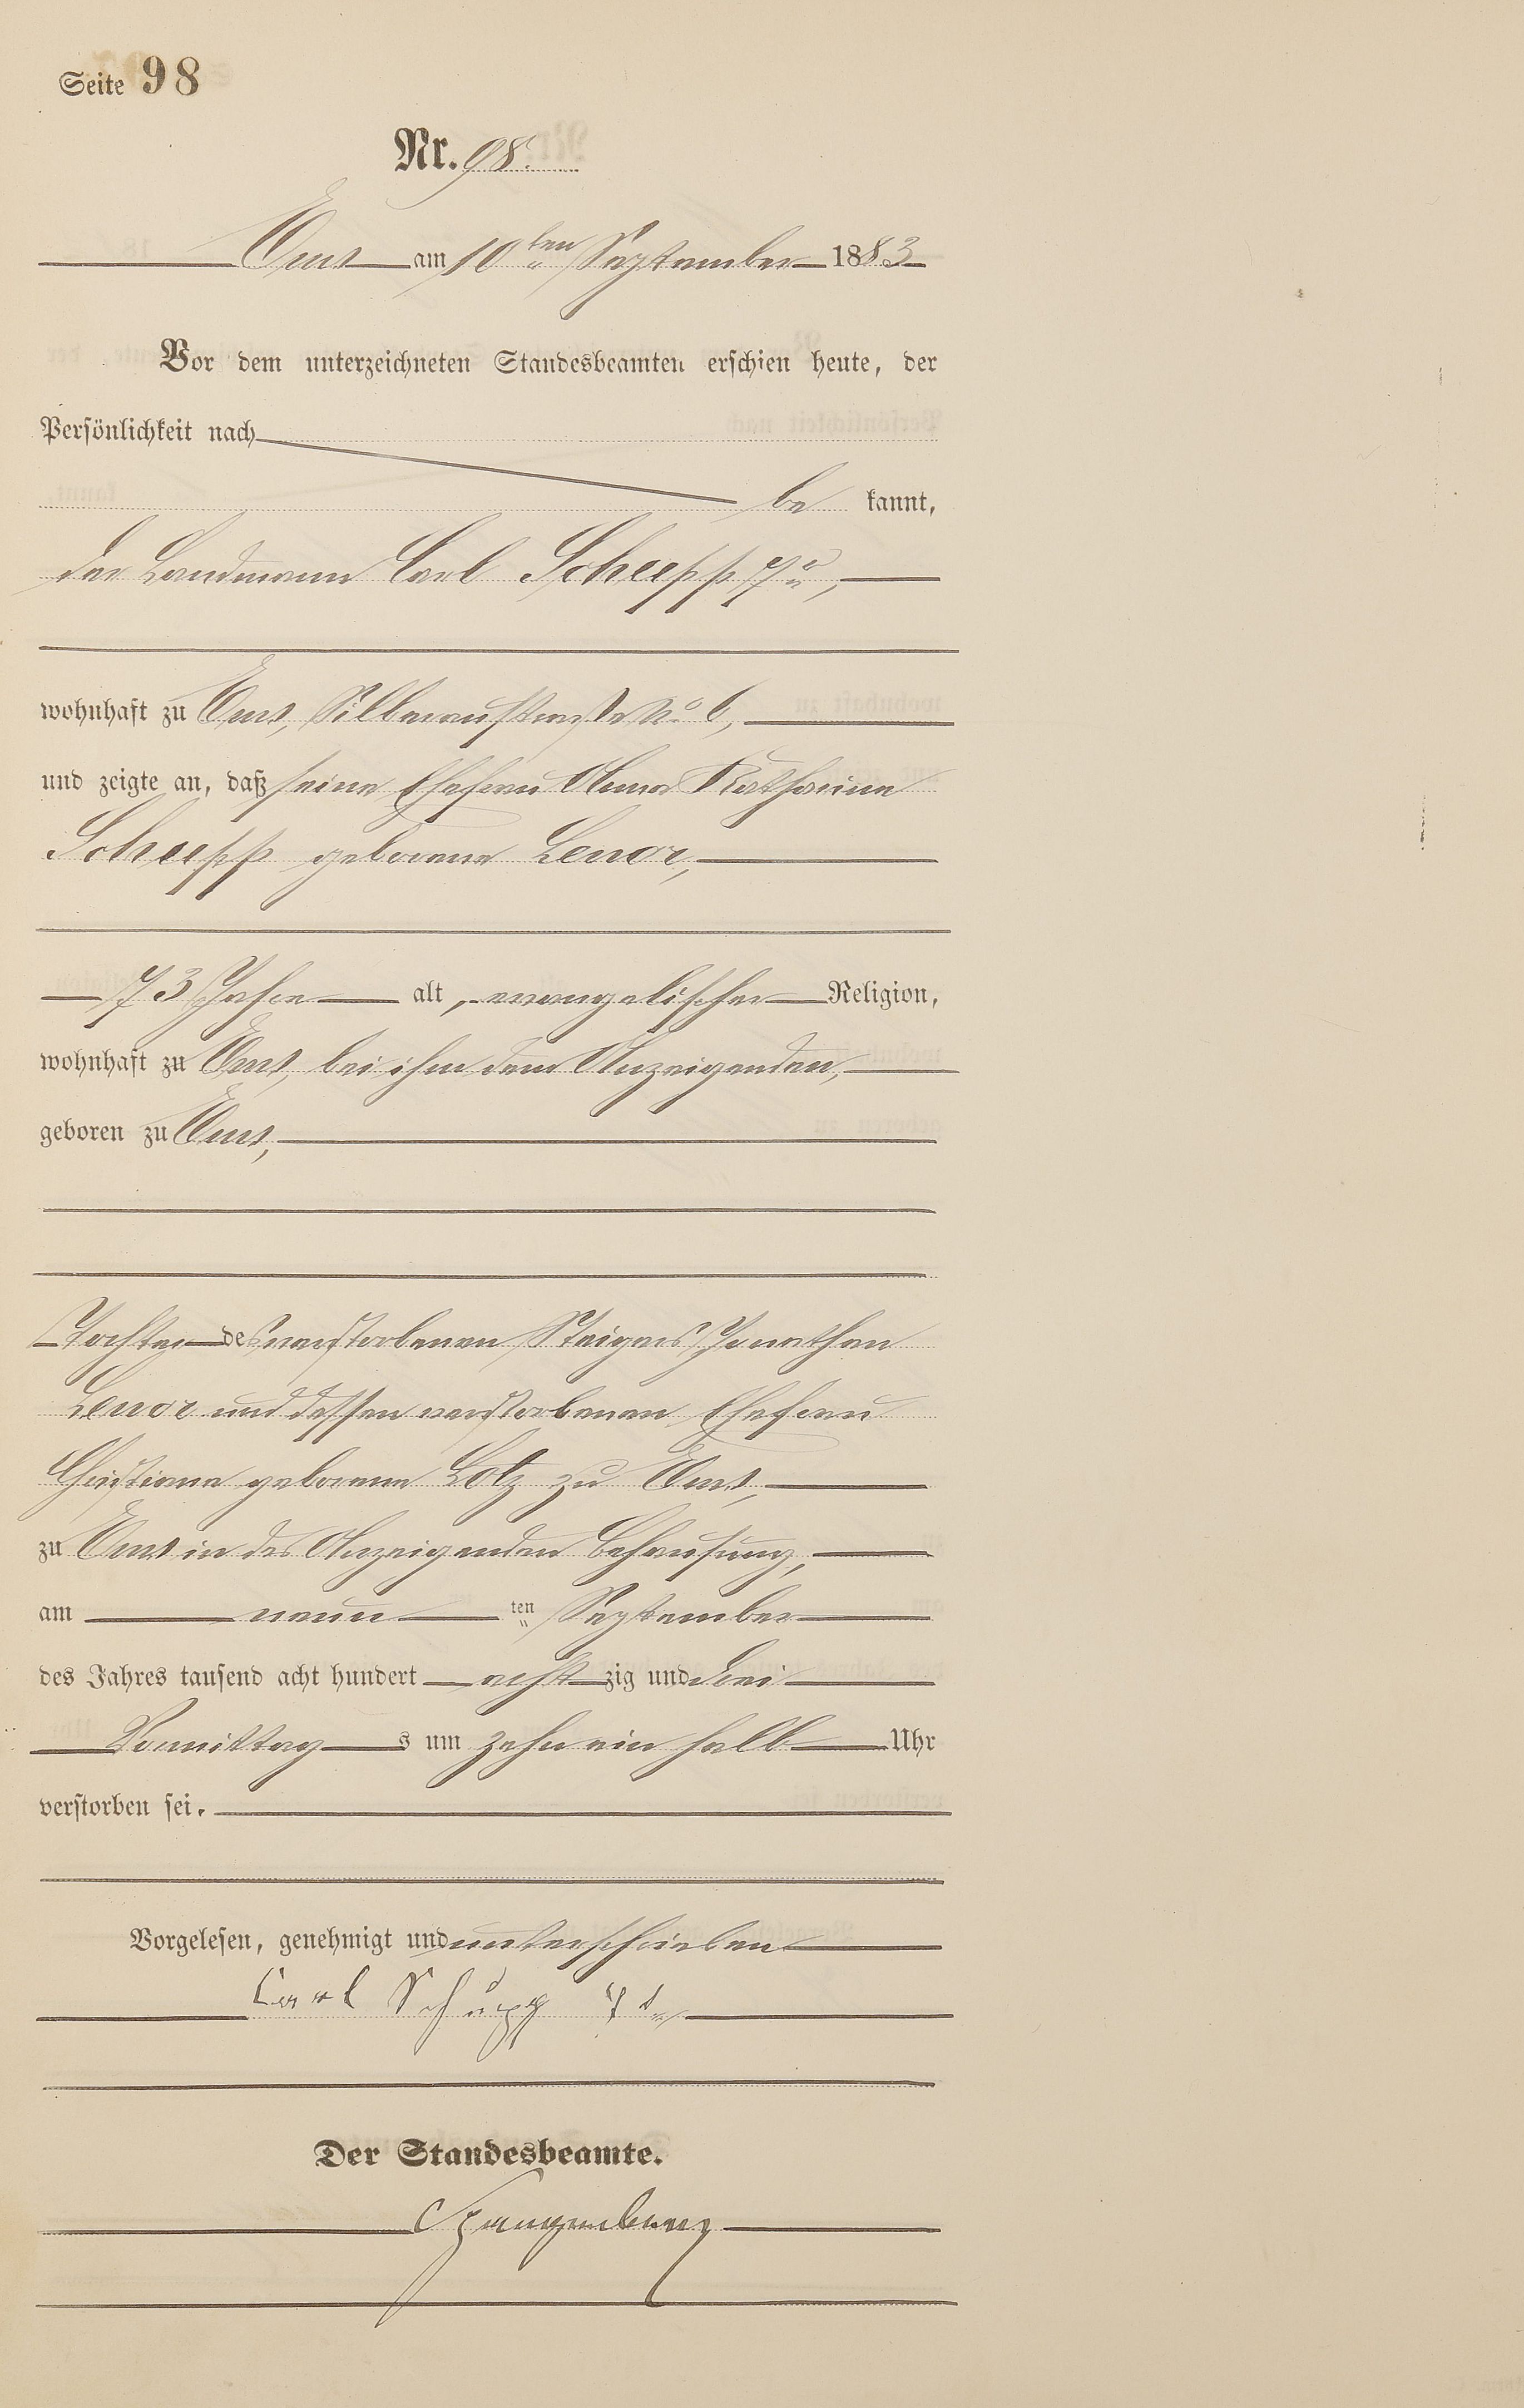 Seite 98
Nr. 98.
Ems am 10ten September 1883
Vor dem unterzeichneten Standesbeamten erschien heute, der
Persönlichkeit nach
be kannt,
der Landmann Carl Schupp
wohnhaft zu Ems, Silberaustraße No 6,
und zeigte an, daß seine Ehefrau Anna Katharine
Schupp geborene Lenor,
73 Jahre alt, evangelischer Religion,
wohnhaft zu Ems, bei ihm dem Anzeigenden,
geboren zu Ems,
Tochter des verstorbenen Steigers Jonathan
Lenor und dessen verstorbenen Ehefrau
Christiane geborene Lotz zu Ems,
zu Ems in des Anzeigenden Behausung,
am neun ten September
des Jahres tausend acht hundert acht zig und drei
Vormittag s um zehn ein halb Uhr
verstorben sei.
Vorgelesen, genehmigt und unterschrieben
Carl Schupp
Der Standesbeamte.
Spangenberg